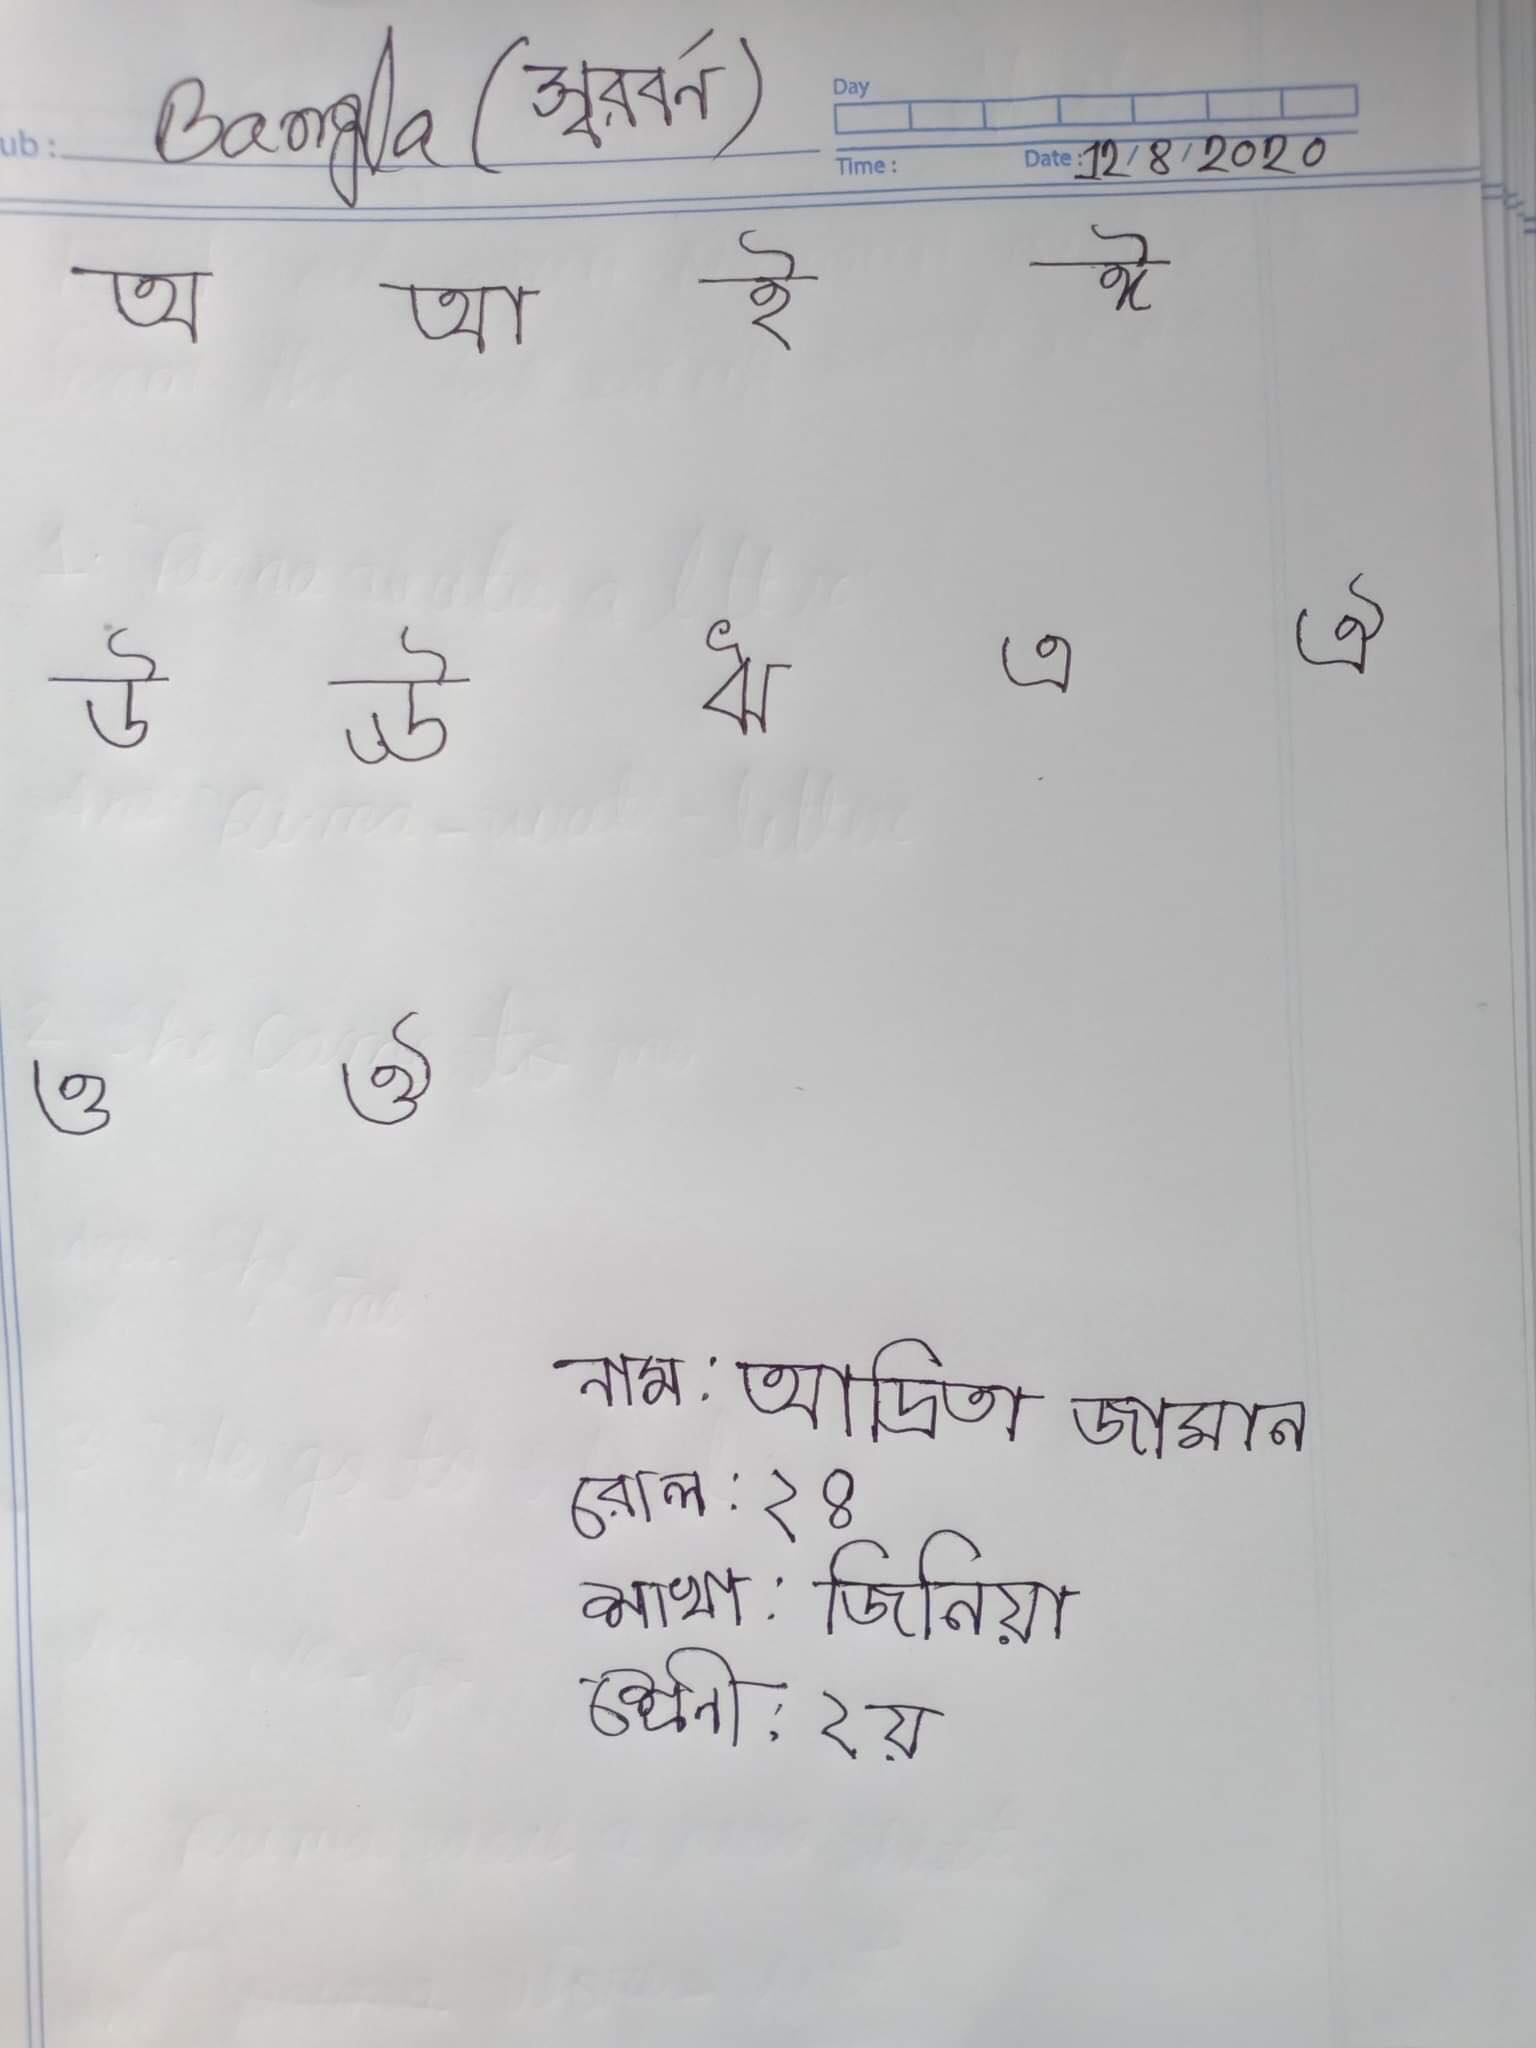 ub : Bangla (স্বরবর্ন)
Day
Time :
Date : 12/8/2020
অ আ ই ঈ
উ ঊ ঋ এ ঐ
ও ঔ
নাম : আদ্রিতা জামান
রোল : ২৪
শাখা : জিনিয়া
শ্রেনী : ২য়